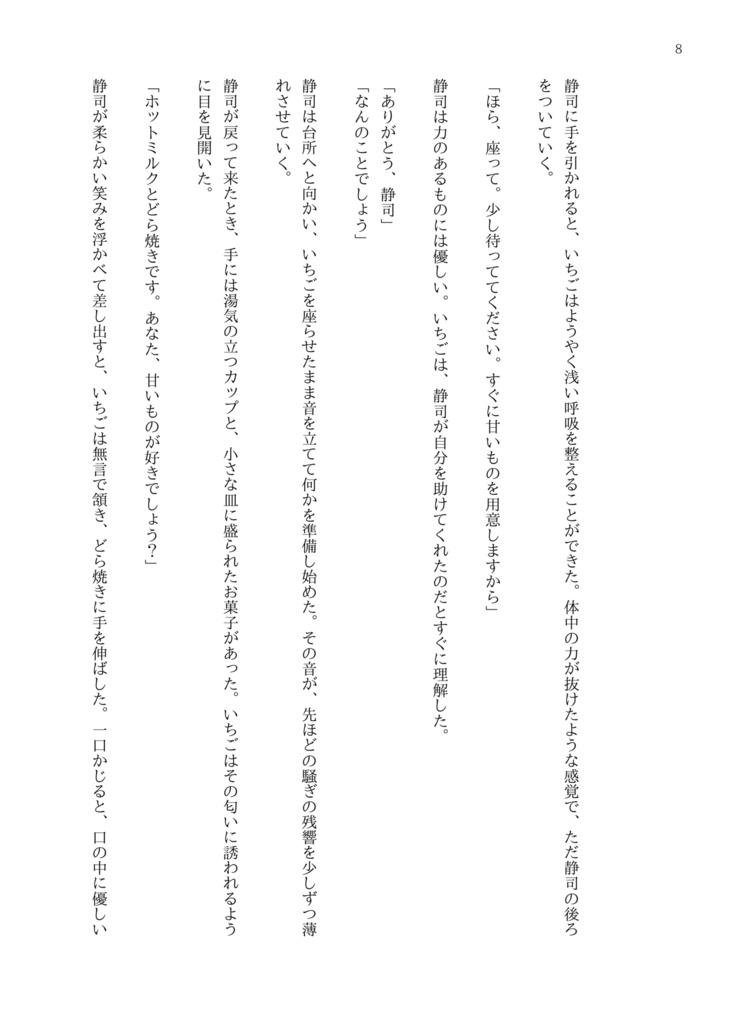 8
静司に手を引かれると、いちごはようやく浅い呼吸を整えることができた。体中の力が抜けたような感覚で、ただ静司の後ろ
をついていく。
「ほら、座って。少し待っててください。すぐに甘いものを用意しますから」
静司は力のあるものには優しい。いちごは、静司が自分を助けてくれたのだとすぐに理解した。
「ありがとう、静司」
「なんのことでしょう」
静司は台所へと向かい、いちごを座らせたまま音を立てて何かを準備し始めた。その音が、先ほどの騒ぎの残響を少しずつ薄
れさせていく。
静司が戻って来たとき、手には湯気の立つカップと、小さな皿に盛られたお菓子があった。いちごはその匂いに誘われるよう
に目を見開いた。
「ホットミルクとどら焼きです。あなた、甘いものが好きでしょう?」
静司が柔らかい笑みを浮かべて差し出すと、いちごは無言で頷き、どら焼きに手を伸ばした。一口かじると、口の中に優しい